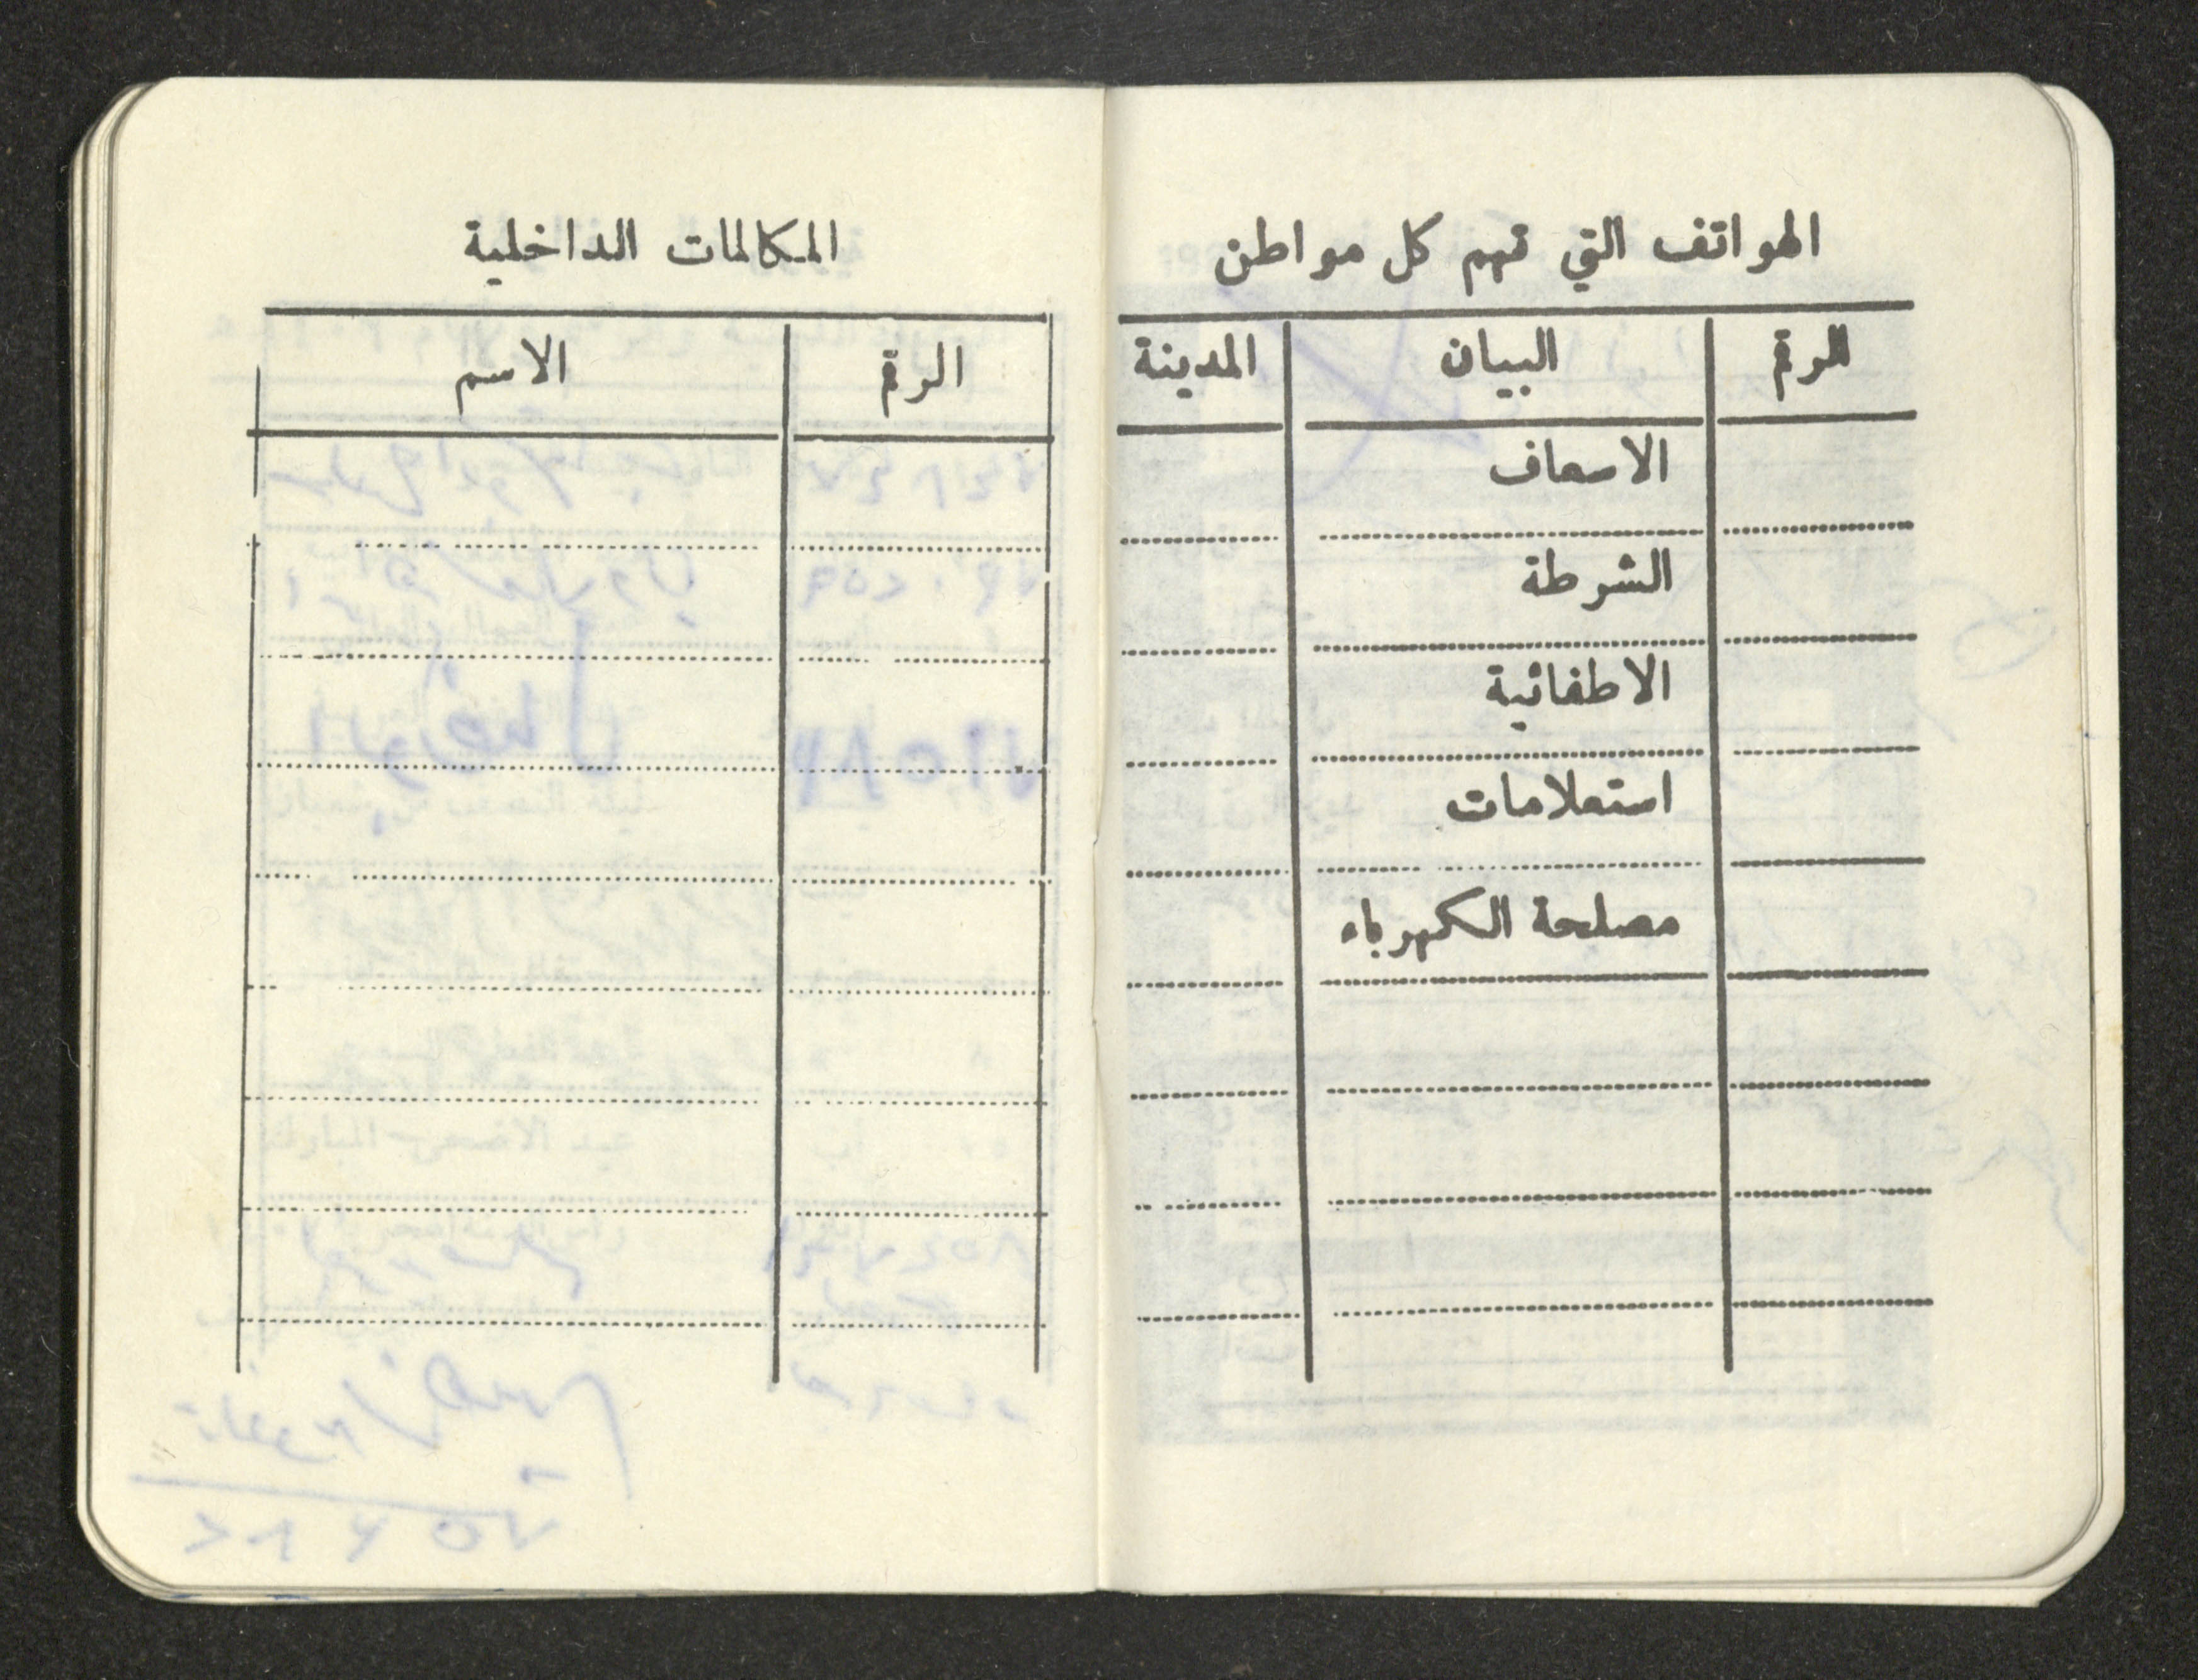 الهواتف التي تهم كل مواطن
الرقم البيان المدينة
الاسعاف
الشرطة
الاطفائية
استعلامات
مصلحة الكهرباء
المكالمات الداخلية
الرقم الاسم